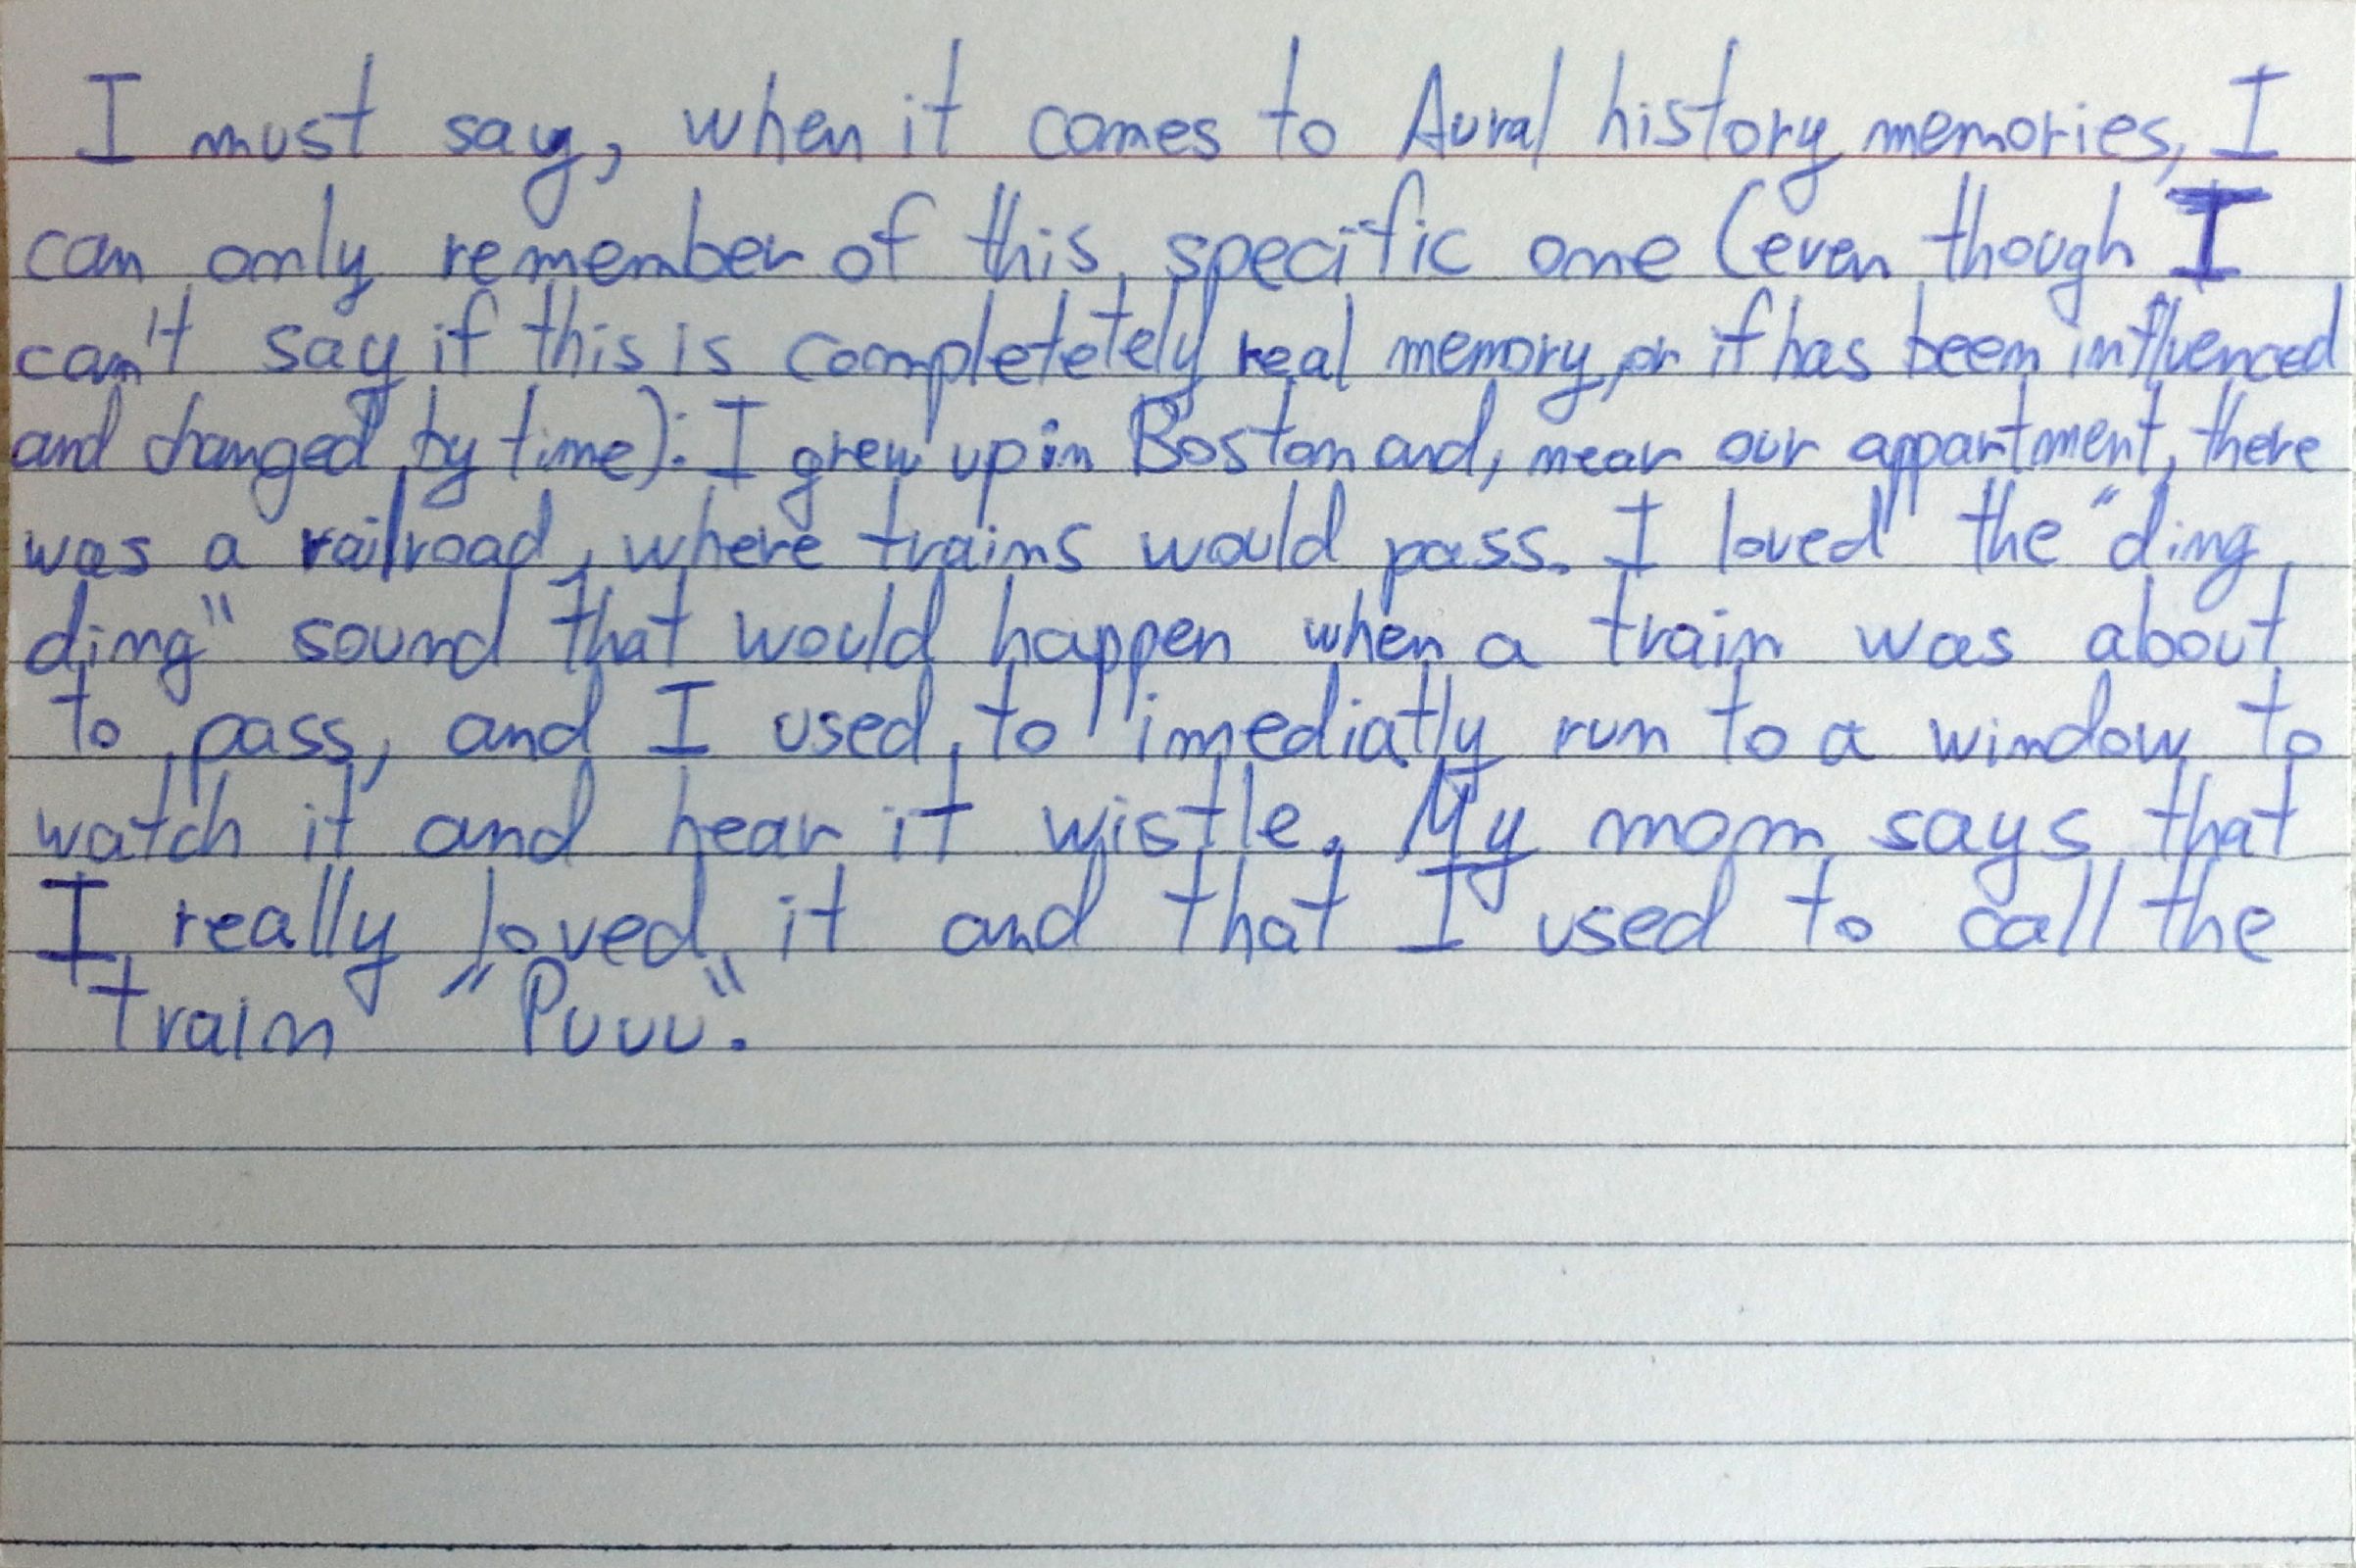 I must say, when it comes to Aural history memories, I
can only remember of this specific one (even though I
can't say if this is completetely real memory, or if has been influenced
and changed by time): I grew up in Boston and, near our appartment, there
was a railroad, where trains would pass. I loved the "ding
ding" sound that would happen when a train was about
to pass, and I used to imediatly run to a window to
watch it and hear it wistle. My mom says that
I really loved it and that I used to call the
train "Puuu".